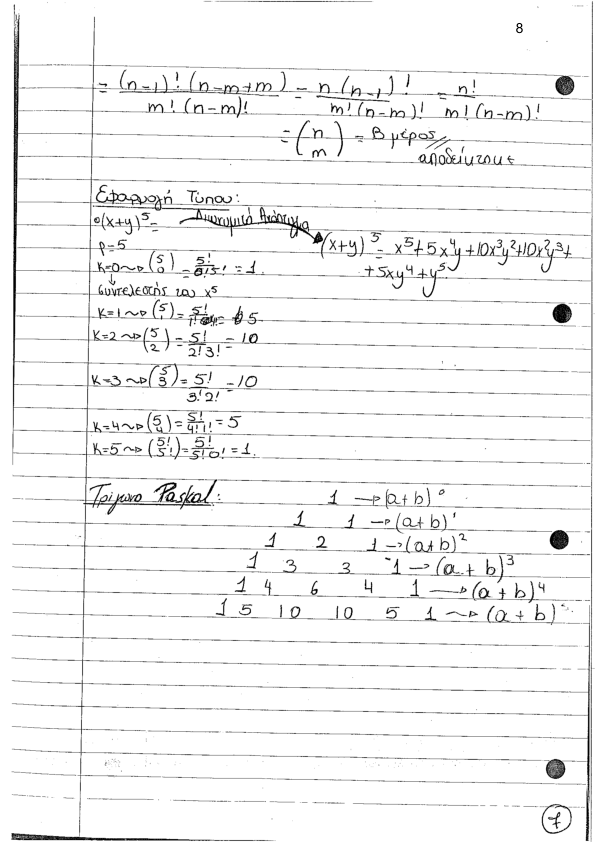 8
= (n-1)! (n-m+m) / m! (n-m)! = n (n-1)! / m! (n-m)! = n! / m! (n-m)!
= (n m) = Β μέρος
αποδείχτηκε
Εφαρμογή Τύπου:
(x+y)^5 = Διωνυμικό Ανάπτυγμα (x+y)^5 = x^5 + 5x^4y + 10x^3y^2 + 10x^2y^3 +
+ 5xy^4 + y^5
ρ=5
κ=0 ~> (5 0) = 5! / 0! 5! = 1.
συντελεστής του x^5
κ=1 ~> (5 1) = 5! / 1! 4! = 5
κ=2 ~> (5 2) = 5! / 2! 3! = 10
κ=3 ~> (5 3) = 5! / 3! 2! = 10
κ=4 ~> (5 4) = 5! / 4! 1! = 5
κ=5 ~> (5! 5!) = 5! / 5! 0! = 1.
Τρίγωνο Paskal:
1 → (a+b)^0
1 1 → (a+b)^1
1 2 1 → (a+b)^2
1 3 3 1 → (a+b)^3
1 4 6 4 1 → (a+b)^4
1 5 10 10 5 1 ~> (a+b)
7